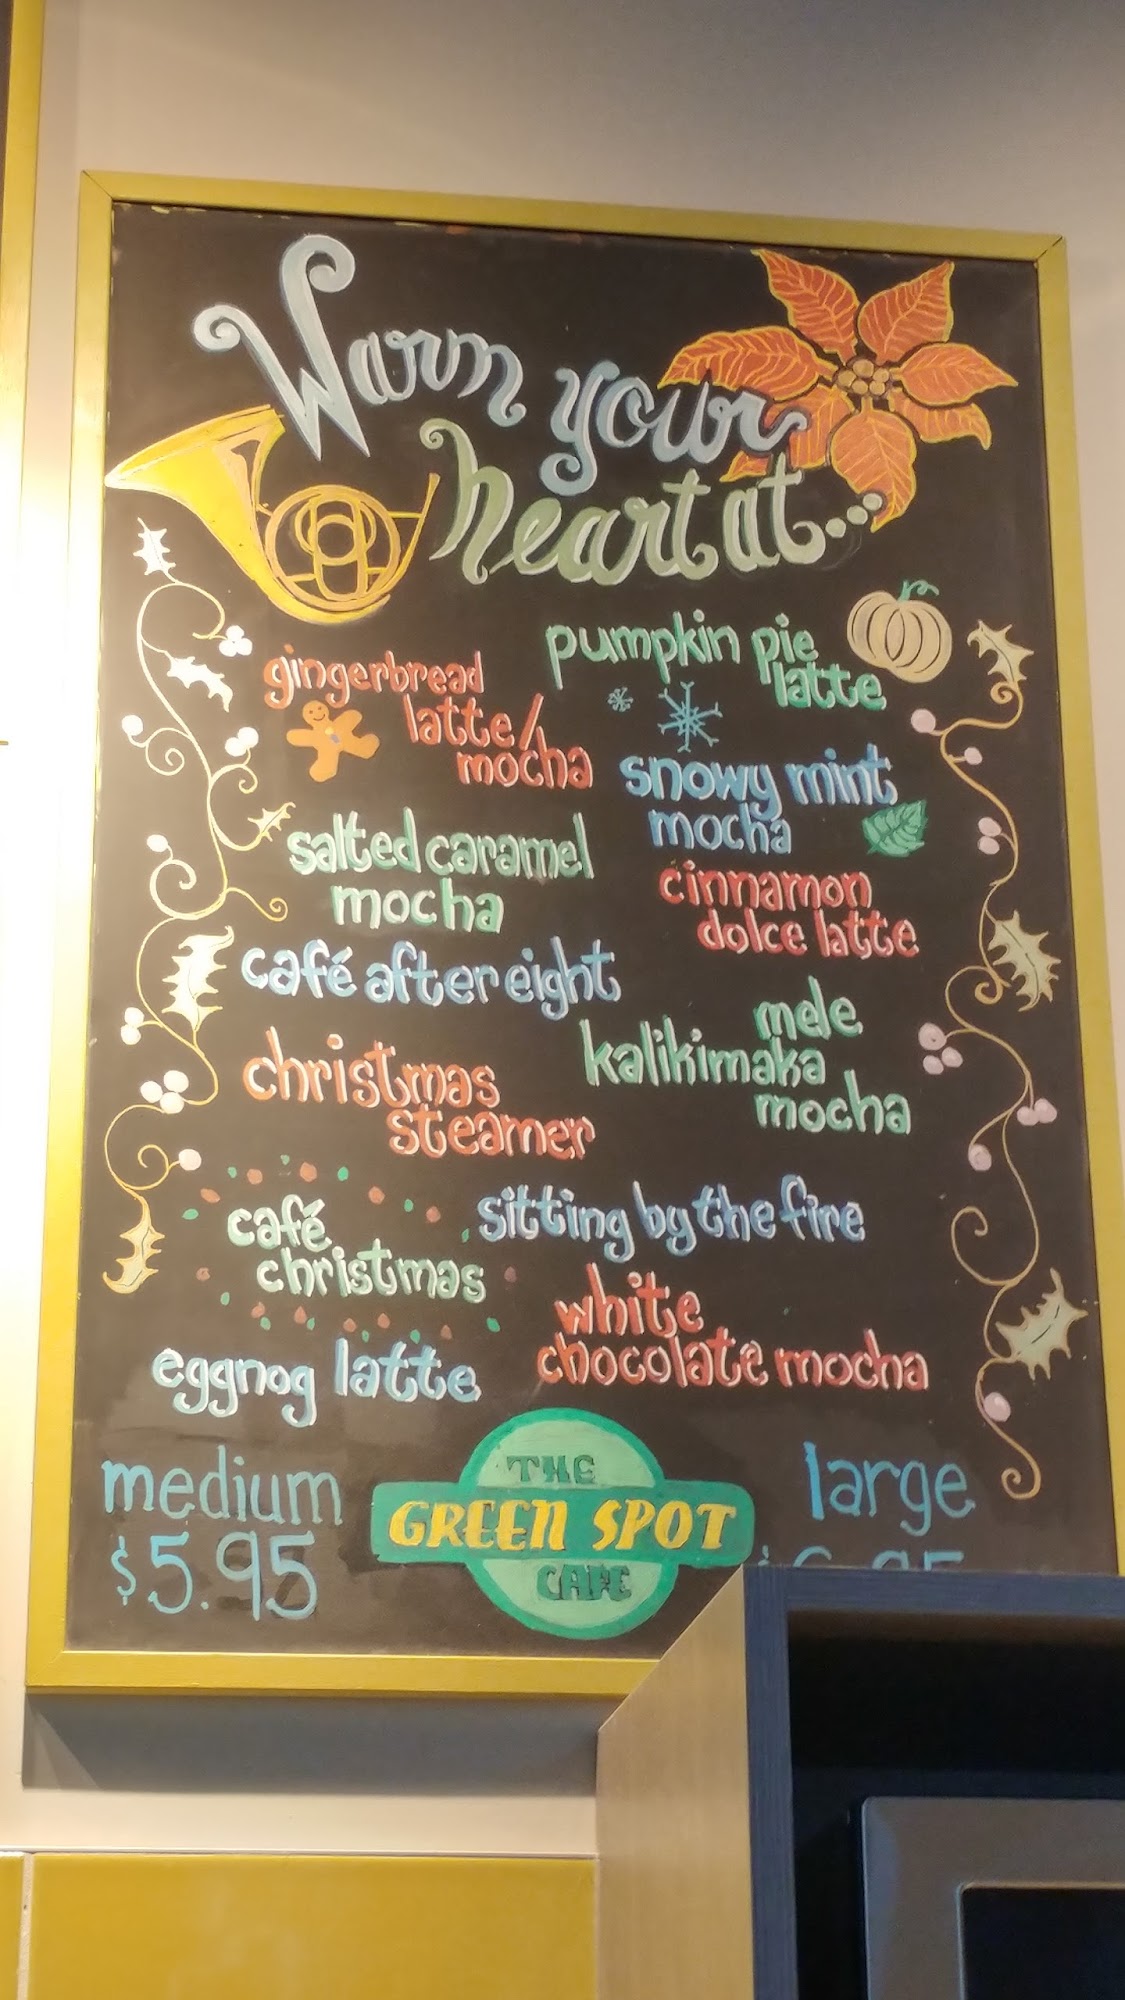 Warm your
heart at...
gingerbread
latte/
mocha
pumpkin pie
latte
snowy mint
mocha
salted caramel
mocha
cinnamon
dolce latte
café after eight
mele
kalikimaka
mocha
christmas
steamer
café
christmas
sitting by the fire
white
chocolate mocha
eggnog latte
medium
$5.95
THE
GREEN SPOT
CAFE
large